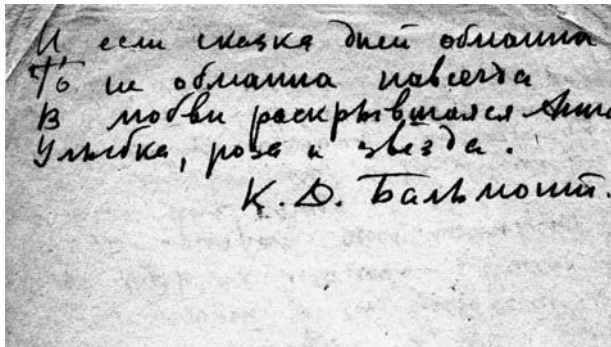 И если сказка дней обманна
То не обманна навсегда
В любви раскрывшаяся Анна
Улыбка, роза и звезда.
К. Д. Бальмонт.